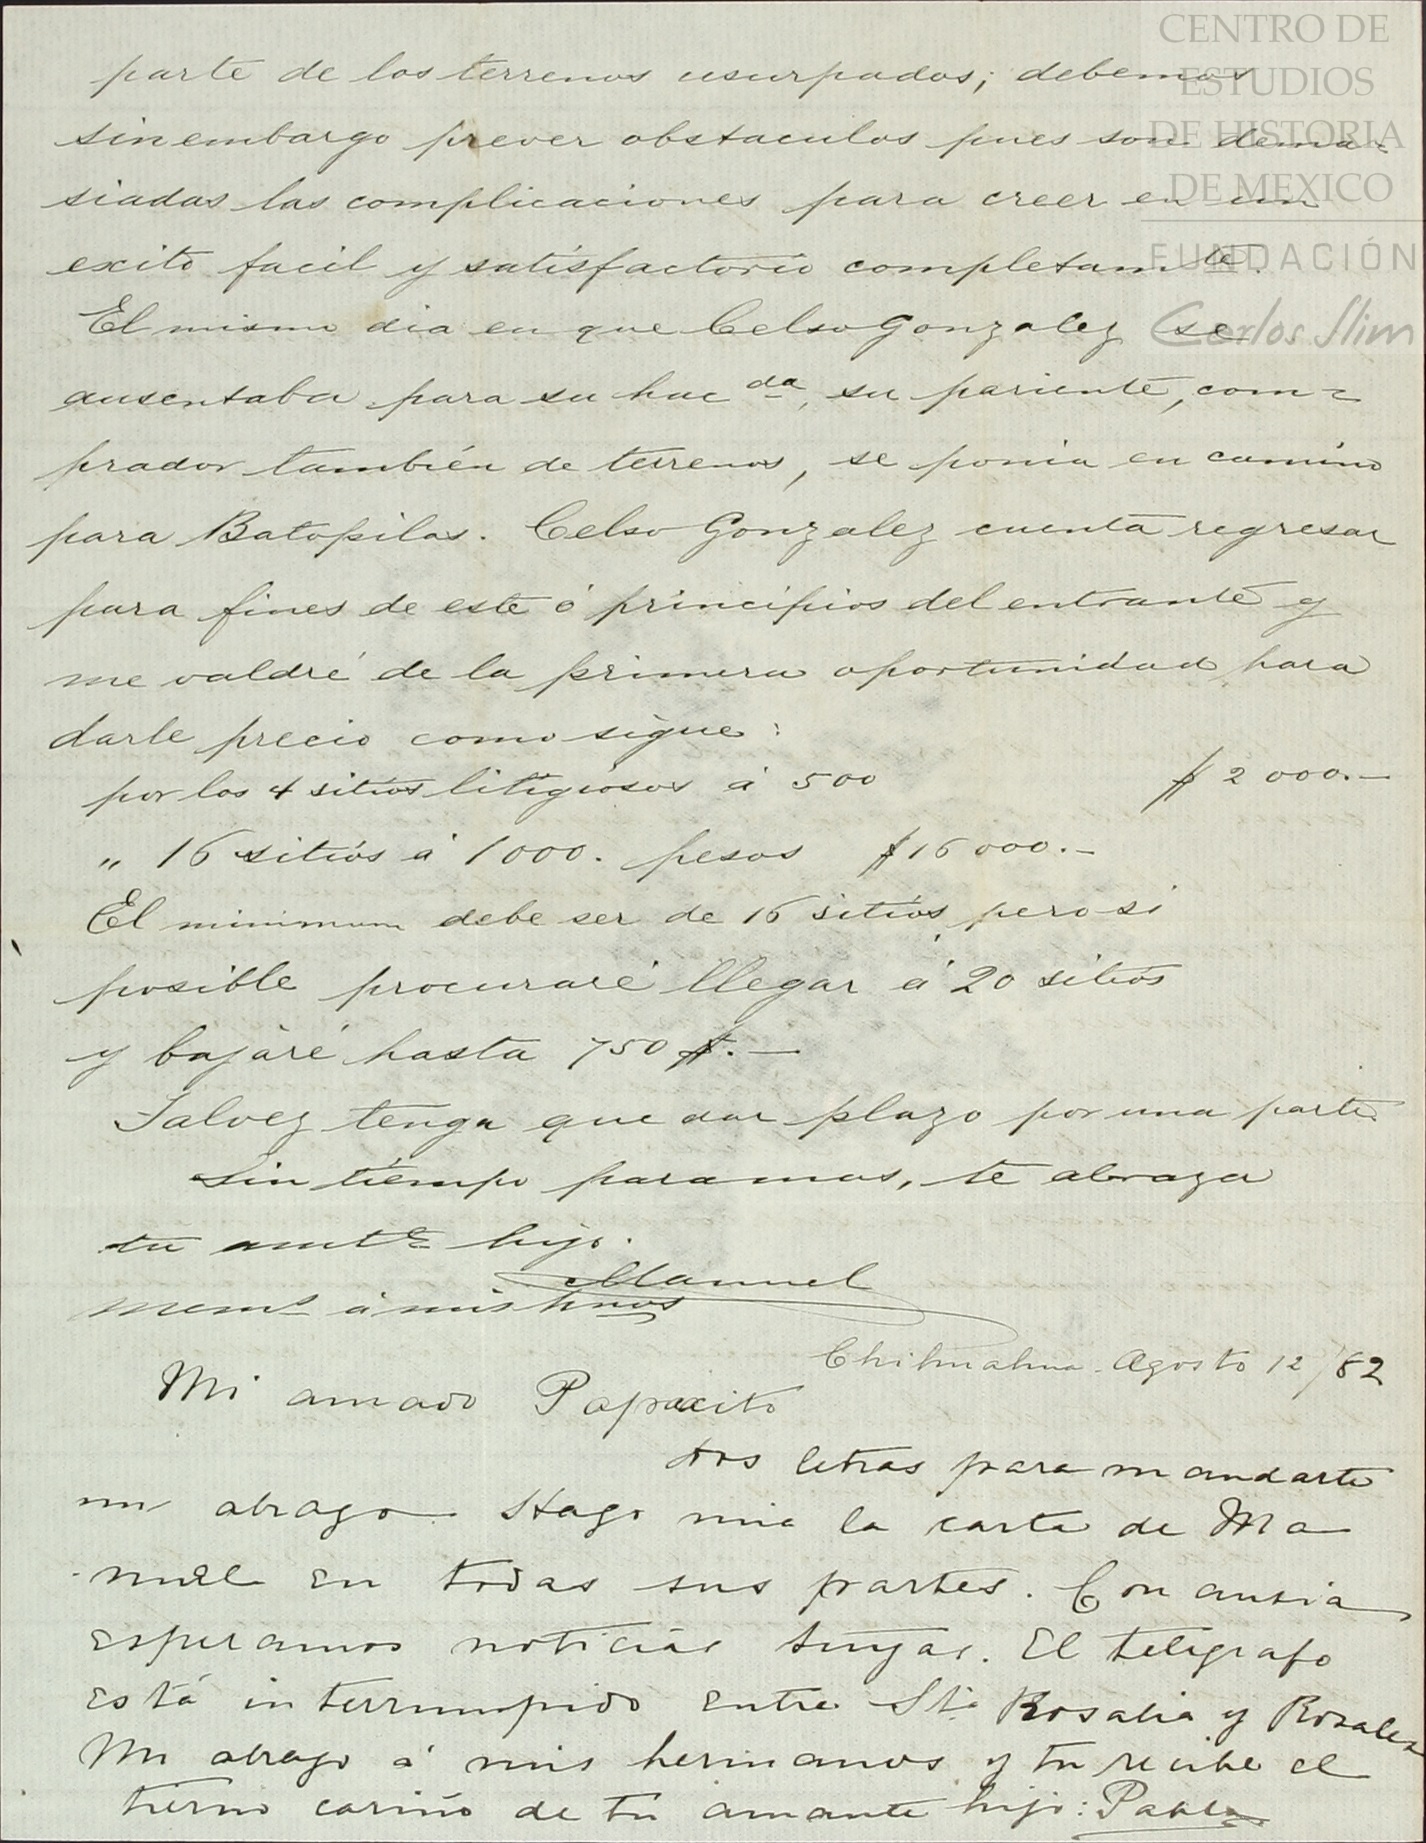 CENTRO DE
ESTUDIOS
DE HISTORIA
DE MEXICO
FUNDACIÓN
Carlos Slim
parte de los terrenos usurpados; debemos
sin embargo prever obstaculos pues son dema-
siadas las complicaciones para creer en un
exito facil y satisfactorio completamte.
El mismo dia en que Celso Gonzalez se
ausentaba para su hacda, su pariente, com=
prador también de terrenos, se ponia en camino
para Batopilas. Celso Gonzalez cuenta regresar
para fines de este ó principios del entrante y
me valdré de la primera oportunidad para
darle precio como sigue:
por los 4 sitios litigiosos á 500 $ 2000.—
„ 16 sitios á 1000. pesos $16000.—
El minimum debe ser de 16 sitios, pero si
posible procuraré llegar á 20 sitios
y bajaré hasta 750 $.—
Talvez tenga que dar plazo por una parte
Sin tiempo para mas, te abraza
tu amte hijo.
Manuel
mems á mis hnos
Chihuahua Agosto 12/82
Mi amado Papacito
dos letras para mandarte
un abrazo. Hago mia la carta de Ma
nuel en todas sus partes. Con ansia
esperamos noticias tuyas. El telégrafo
está interrumpido entre Sta Rosalia y Rosales
Un abrazo á mis hermanos y tu recibe el
tierno cariño de tu amante hijo: Pablo